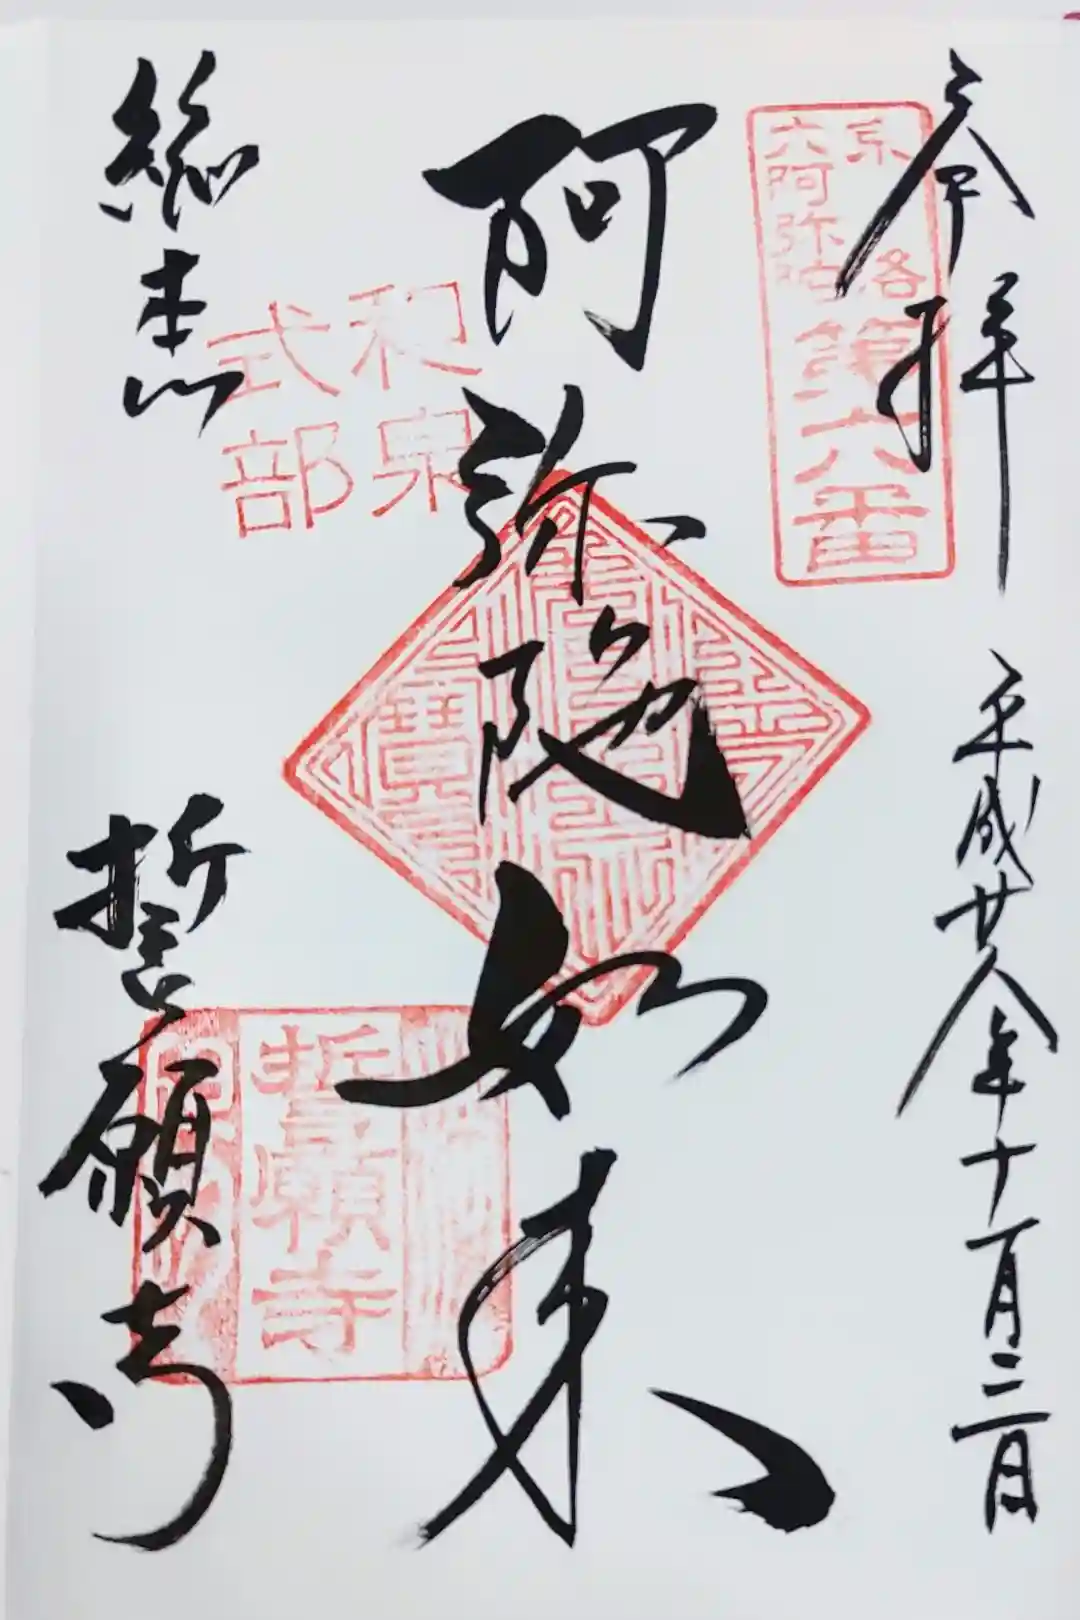 奉拝 平成廿八年十一月三日
京洛
六阿弥陀
第六番
阿弥陀如来
和泉
式部
総本山 誓願寺
誓願寺